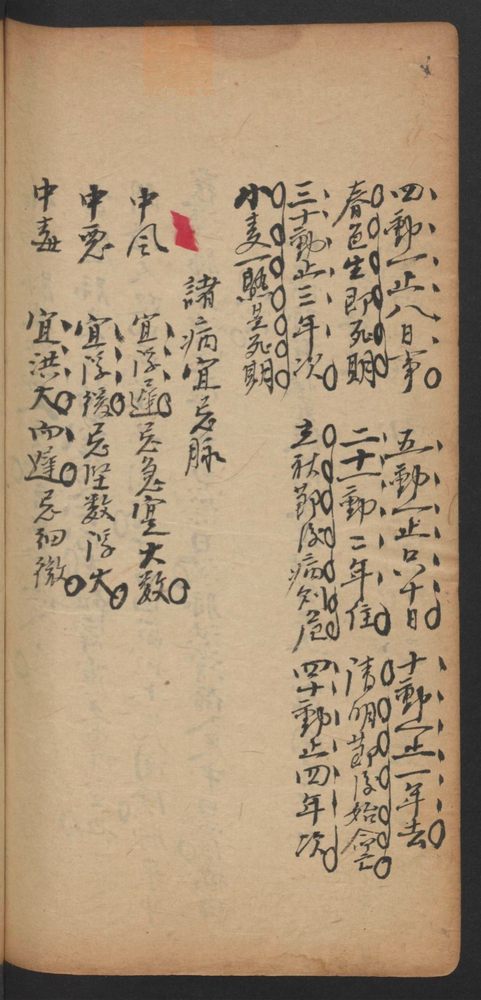 四動一止八日事　五動一止只十日　十動一止一年去
春艸生即死期　二十一動二年住　清明節後始會亡
三十動一止三年次　立秋節後病多危　四十動一止四年次
小麦一熟是死期
諸病宜忌脉
中风　宜浮遲　忌急實大数
中恶　宜浮緩　忌坚数浮大
中毒　宜洪大而遲　忌细微